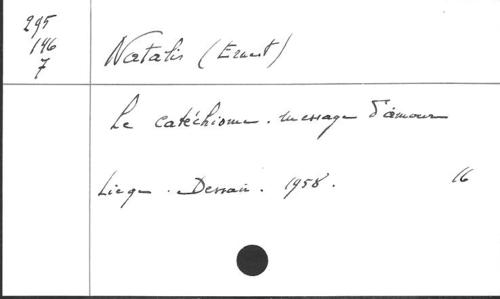 295
146
7
Natalis (Ernest)
Le catéchisme. message d'amour
Liège. Dessain. 1958. 16